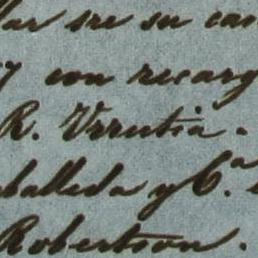 lar sre su can
7 con recarg
R. Urrutia.
aballeda y C.ª
Robertson.